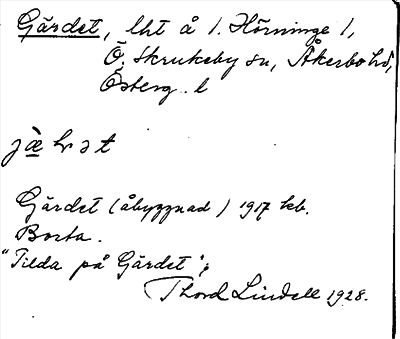 Gärdet, lht å 1. Hörninge 1,
Ö. Skrukeby sn, Åkerbo hd,
Österg. l
Gärdet (åbyggnad) 1917 kb.
Borta.
"Tilda på Gärdet";
Thord Lindell 1928.